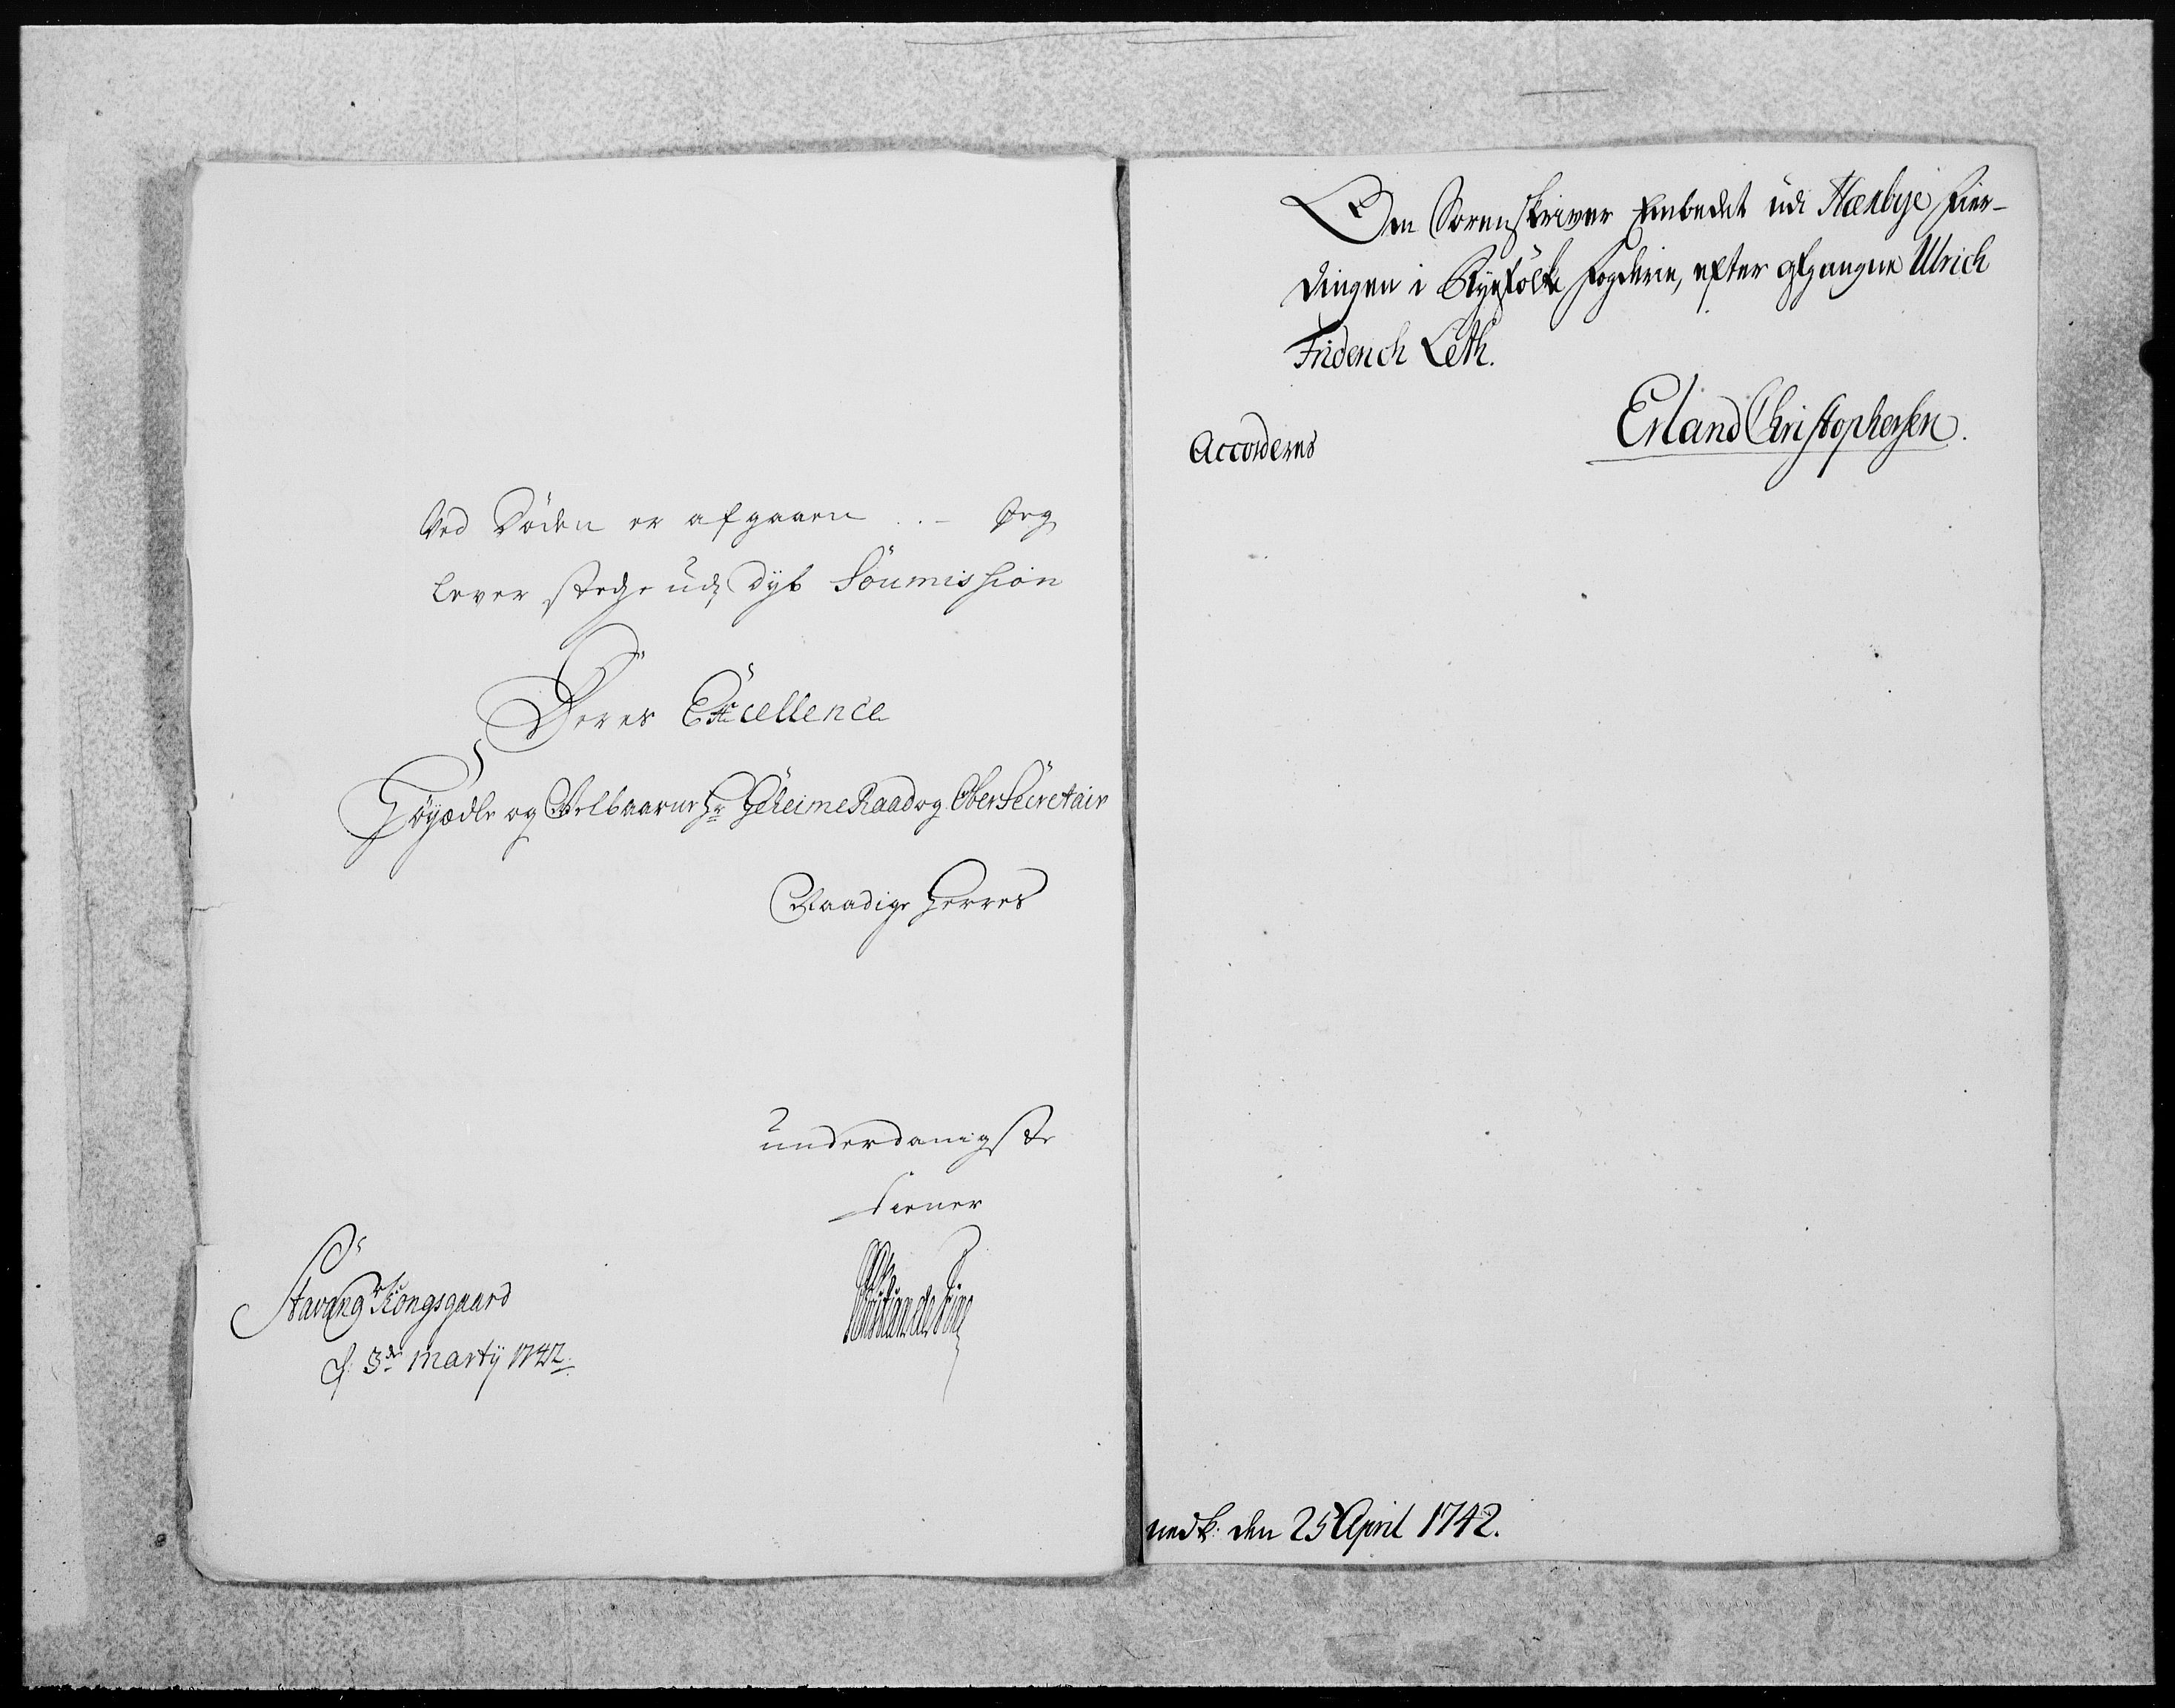 Ved Döden er afgaaen . . – Jeg
lever stedse udj dyb Soumission
Deres Excellence
Höyædle og Velbaarne Hr Geheime Raad og Ober Secretair
Naadige Herres
underdanigste
tiener
Christian de Fine
Stavangr Kongsgaard
d. 3de Marty 1742.
Den Sorenskriver Embedet udi Hæsbye Fier-
dingen i Ryefölke Fogderie, efter afgangne Ulrich
Friderich Leth.
Erland Christophersen.
Accorderes
nedk: den 25 April 1742.